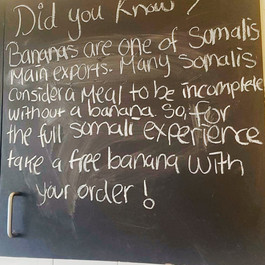 Did you know?
Bananas are one of Somalis
main exports. Many Somalis
consider a meal to be incomplete
without a banana. So, for
the full somali experience
take a free banana with
your order!